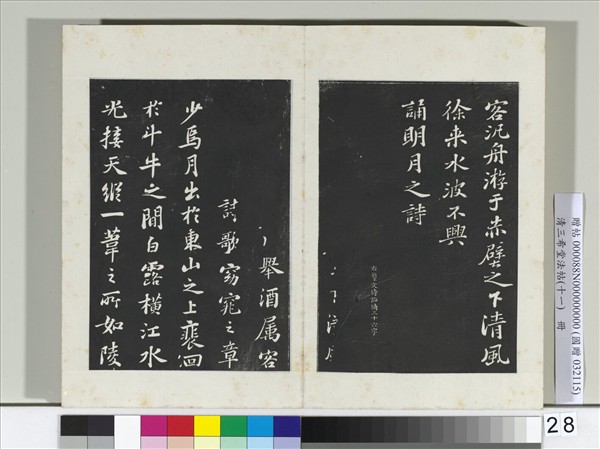 客泛舟游于赤壁之下清風
徐来水波不興
誦明月之詩
舉酒属客
詩歌窈窕之章
少焉月出於東山之上裴洄
於斗牛之間白露橫江水
光接天縱一葦之所如陵
贈帖 000088N000000000 (國贈 032115)
清三希堂法帖(十一) 冊
28